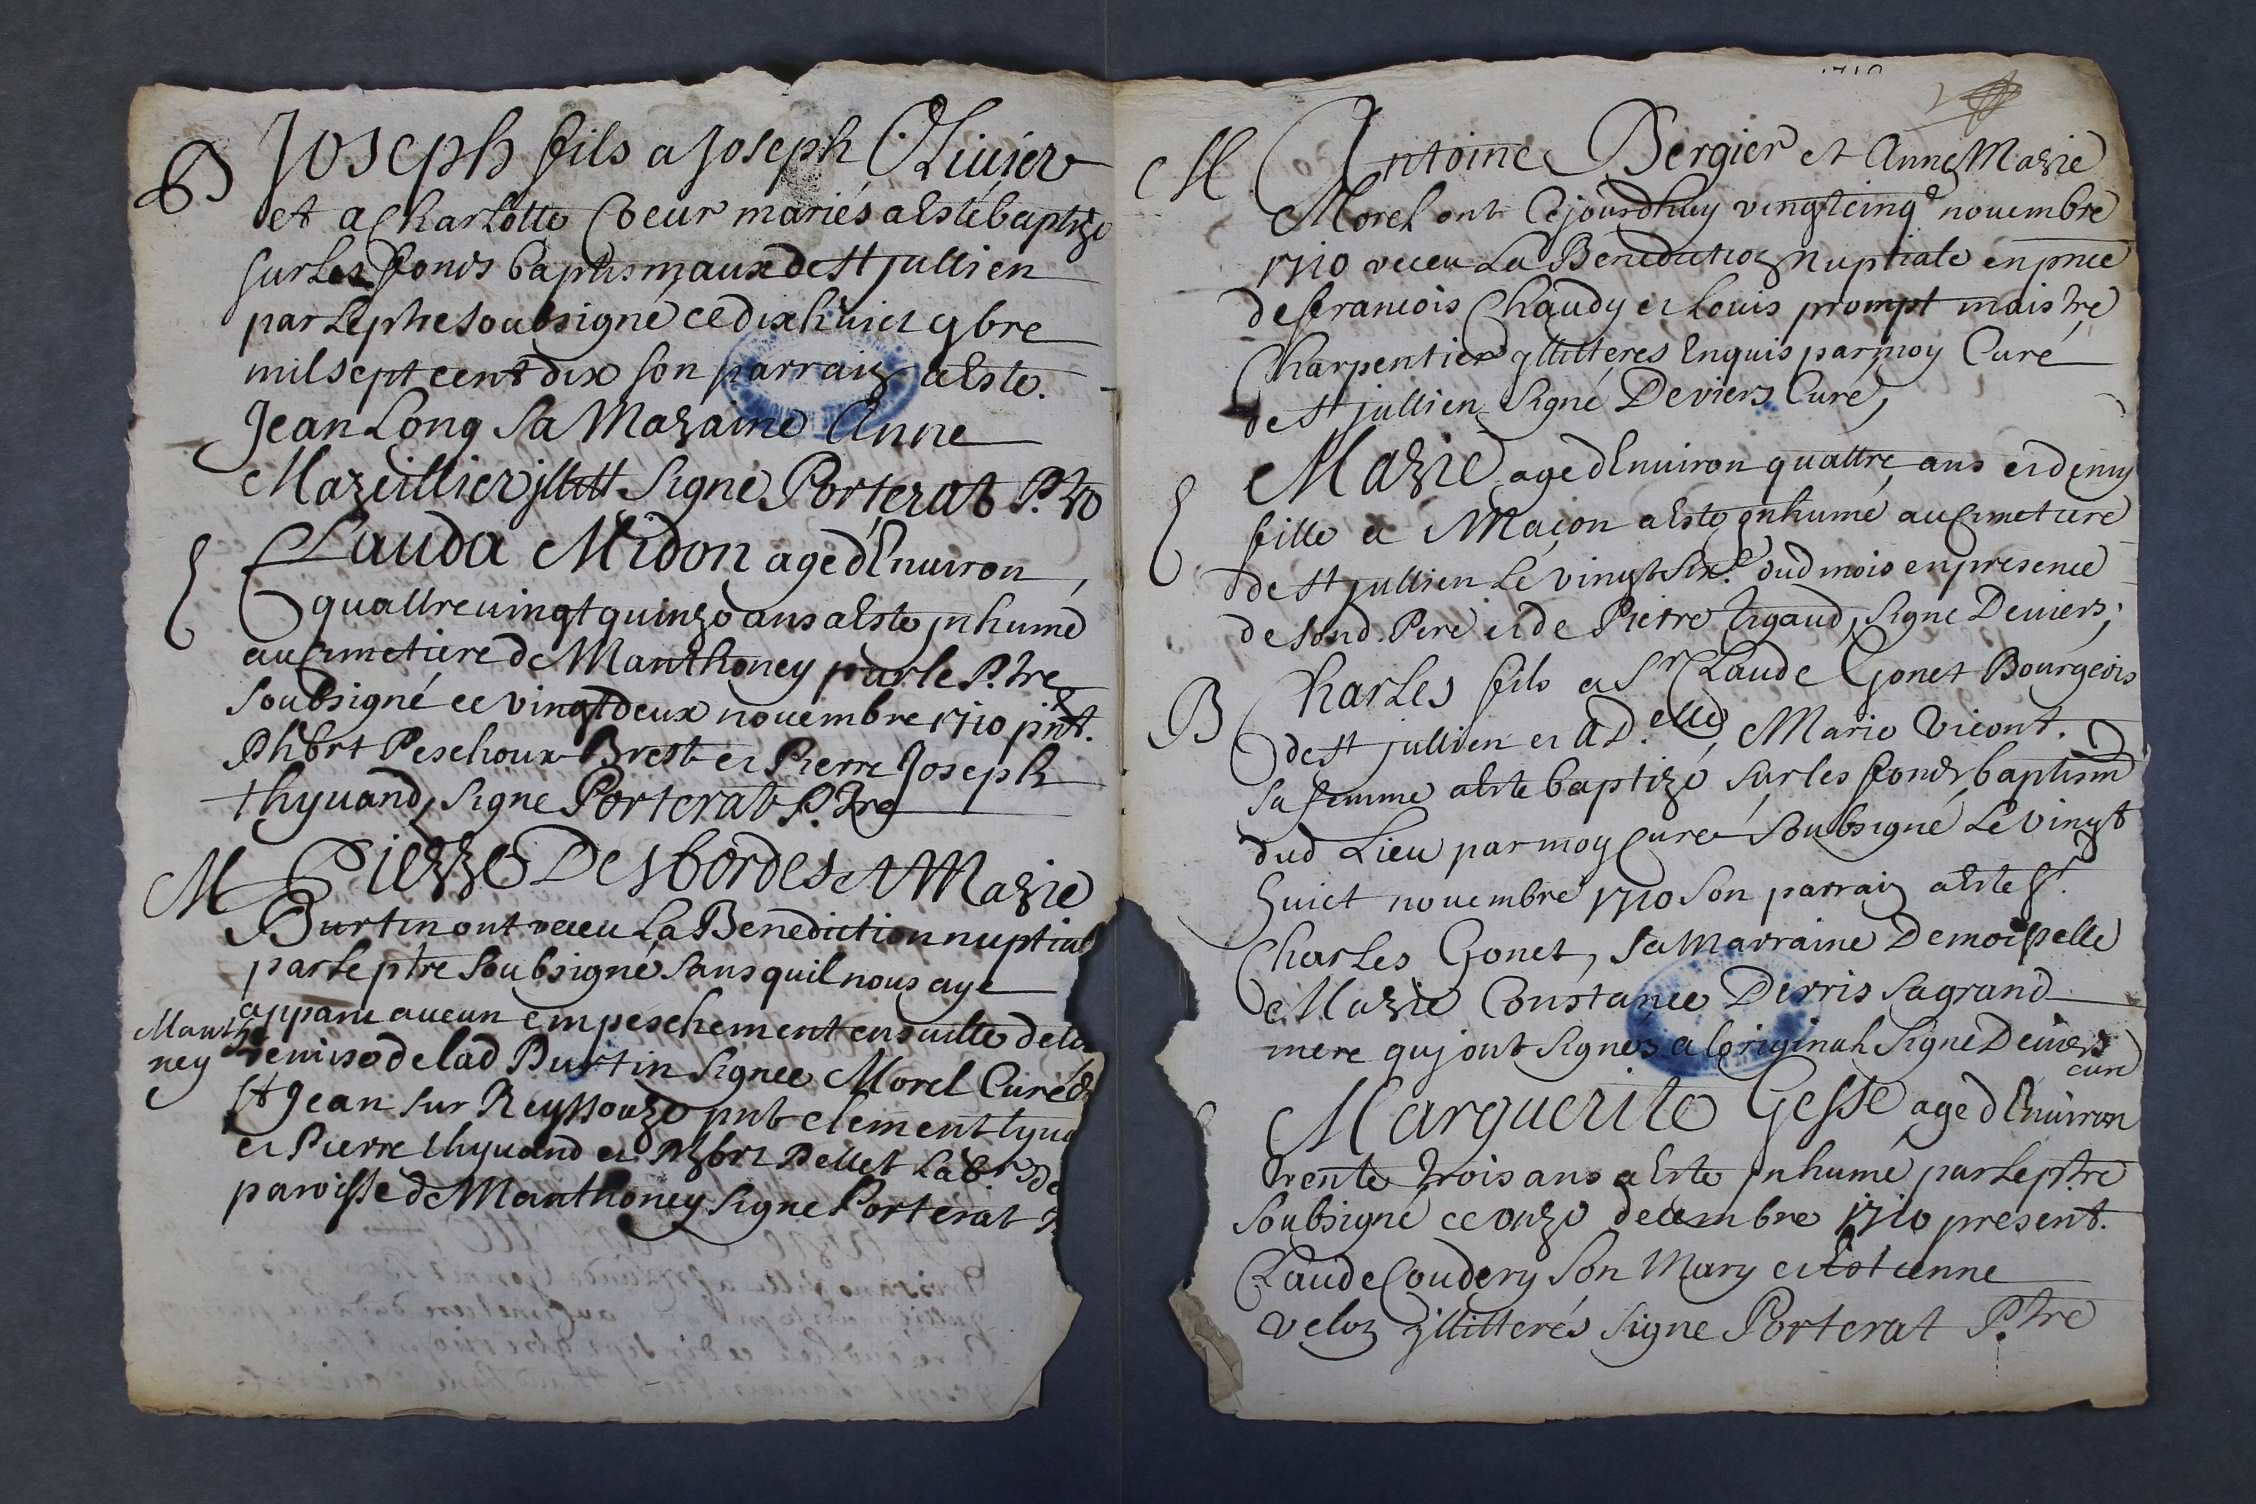 B Joseph fils a Joseph Oliuier
et a Charlotte Coeur mariés a Esté baptizé
sur Les fonds baptismaux de St jullien
par Le ptre soubsigné ce dix huict 9bre
mil sept cent dix son parrain a Este
Jean Long sa Maraine Anne
Mareillier illitt signe Porterat P.tre
E Clauda Midon age dEnuiron
quattre uingt quinze ans a Este jnhumé
au cimetiere de Manthoney par le P.tre
soubsigné ce vingt deux nouembre 1710 pnt.
Phbrt Peschoux Brest et Pierre Joseph
thyuand, signe Porterat P.tre
M Pierre Desbordes et Marie
Burtin ont receu La Benediction nuptial
par Le ptre soubsigné sans quil nous aye
apparu aucun empeschement ensuitte de la
Mantho
ney
remise de lad Burtin signee Morel Curé de
St Jean sur Reyssouze pnt clement
et Pierre thyuand et Phbrt Pellet Lab.rs de
paroisse de Manthoney signe Porterat
1710
M Antoine Bergier et Anne Marie
Morel ont Cejourdhuy vingt cinq.e nouembre
1710 receu La Benediction Nuptiale en pnce
de francois Chaudy et Louis prompt maistre
Charpentier jllitteres Enquis par moy Curé
de St jullien signé Deviers Curé,
E Marie age dEnuiron quattre ans et demy
fille a Maçon a Este enhumé au cimetiere
de St jullien Le vingt six.e dud mois en presence
de sond. Pere et de Pierre Tigaud, signe Deuiers,
B Charles fils a Sr Claude Gonet Bourgeois
de St jullien et a D.elle Marie Vicont.
sa femme a Este baptizé sur les fonds baptism
dud Lieu par moy Curé soubsigné Le vingt
huict nouembre 1710 son parrain a Este Sr.
Charles Gonet, sa Marraine Demoiselle
Marie Constance Derris sa grand
mere quj ont signés a Loriginal signe Deuiers
curé
Marguerite Gesse age dEnuiron
trente trois ans a Este jnhumé par Le ptre
soubsigné ce onze decembre 1710 present.
Claude Coudery son Mary et Estienne
Velon jllitterés signe Porterat P.tre